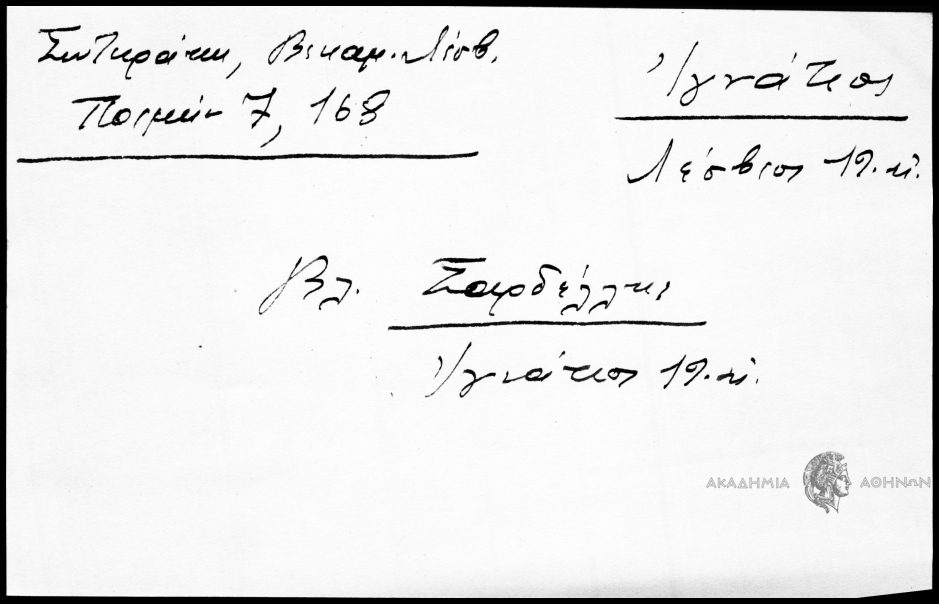 Σωτηράκη, Βικαρ. Λέσβ.
Ποιμήν 7, 168
Ἰγνάτιος
Λέσβιος 19. αἰ.
βλ. Σαρδέλλης
Ἰγνάτιος 19. αἰ.
ΑΚΑΔΗΜΙΑ ΑΘΗΝΩΝ